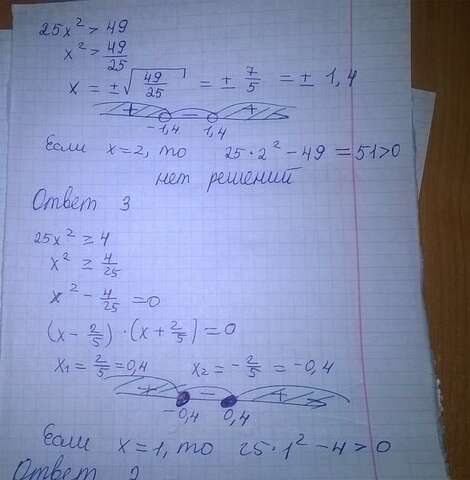 25x² > 49
x² > 49/25
x = ±√(49/25) = ± 7/5 = ± 1,4
+ − +
-1,4 1,4
Если x=2, то 25·2² − 49 = 51>0
нет решений
Ответ 3
25x² ≥ 4
x² ≥ 4/25
x² − 4/25 = 0
(x − 2/5) · (x + 2/5) = 0
x₁ = 2/5 = 0,4 x₂ = − 2/5 = −0,4
+ − +
-0,4 0,4
Если x=1, то 25·1² − 4 > 0
Ответ 2